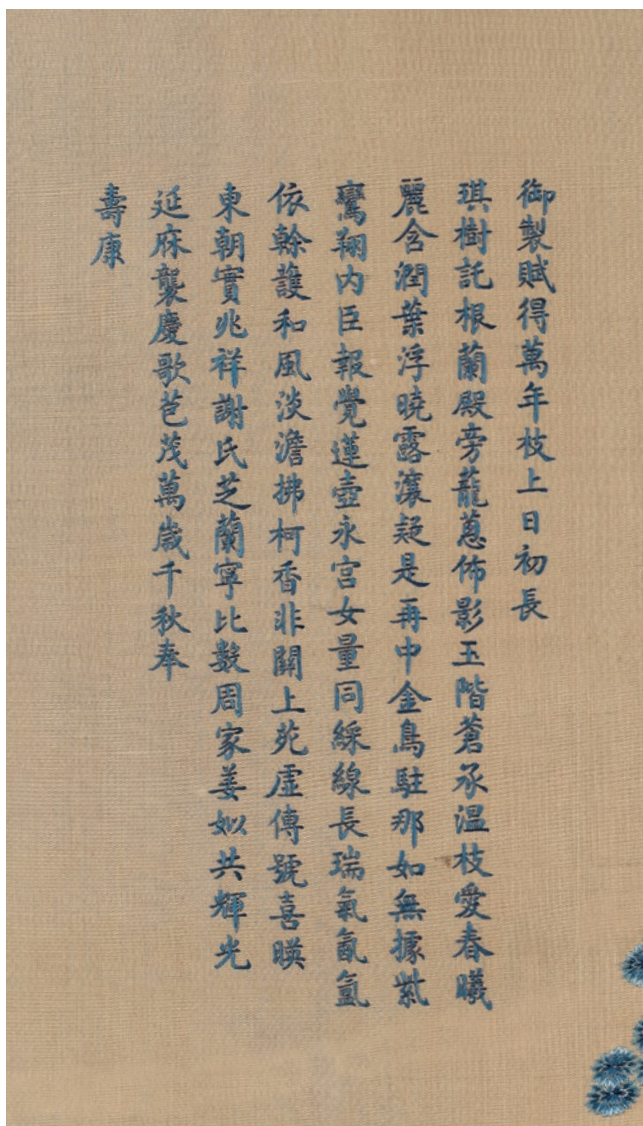 御製賦得萬年枝上日初長
琪樹託根蘭殿旁蘢蔥佈影玉階蒼承溫枝愛春曦
麗含潤葉浮曉露瀼疑是再中金烏駐那如無據紫
鸞翔內臣報覺蓮壺永宮女量同綵線長瑞氣氤氳
依榦護和風淡澹拂柯香非關上苑虛傳號喜暎
東朝實兆祥謝氏芝蘭寧比數周家姜姒共輝光
延庥襲慶歌苞茂萬歲千秋奉
壽康